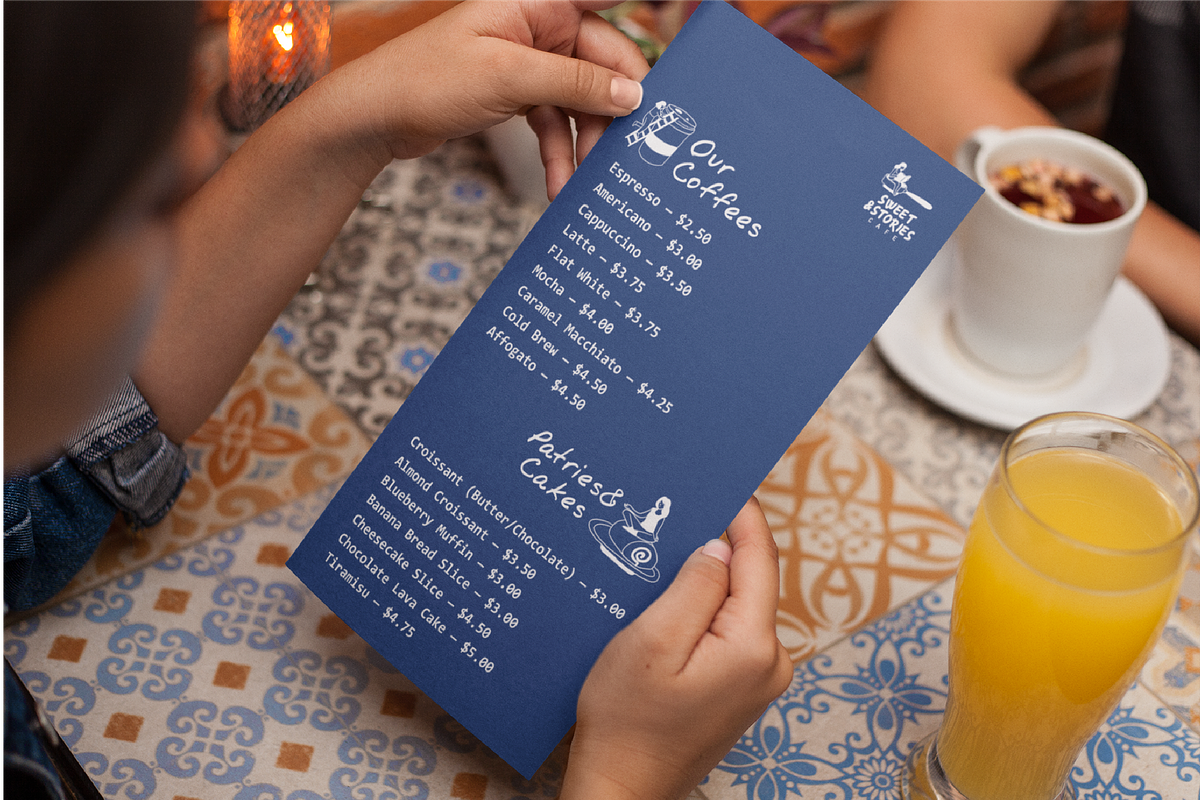 Our
Coffees
Espresso – $2.50
Americano – $3.00
Cappuccino – $3.50
Latte – $3.75
Flat White – $3.75
Mocha – $4.00
Caramel Macchiato – $4.25
Cold Brew – $4.50
Affogato – $4.50
SWEET
&STORIES
CAFE
Patries&
Cakes
Croissant (Butter/Chocolate) – $3.00
Almond Croissant – $3.50
Blueberry Muffin – $3.00
Banana Bread Slice – $3.00
Cheesecake Slice – $4.50
Chocolate Lava Cake – $5.00
Tiramisu – $4.75